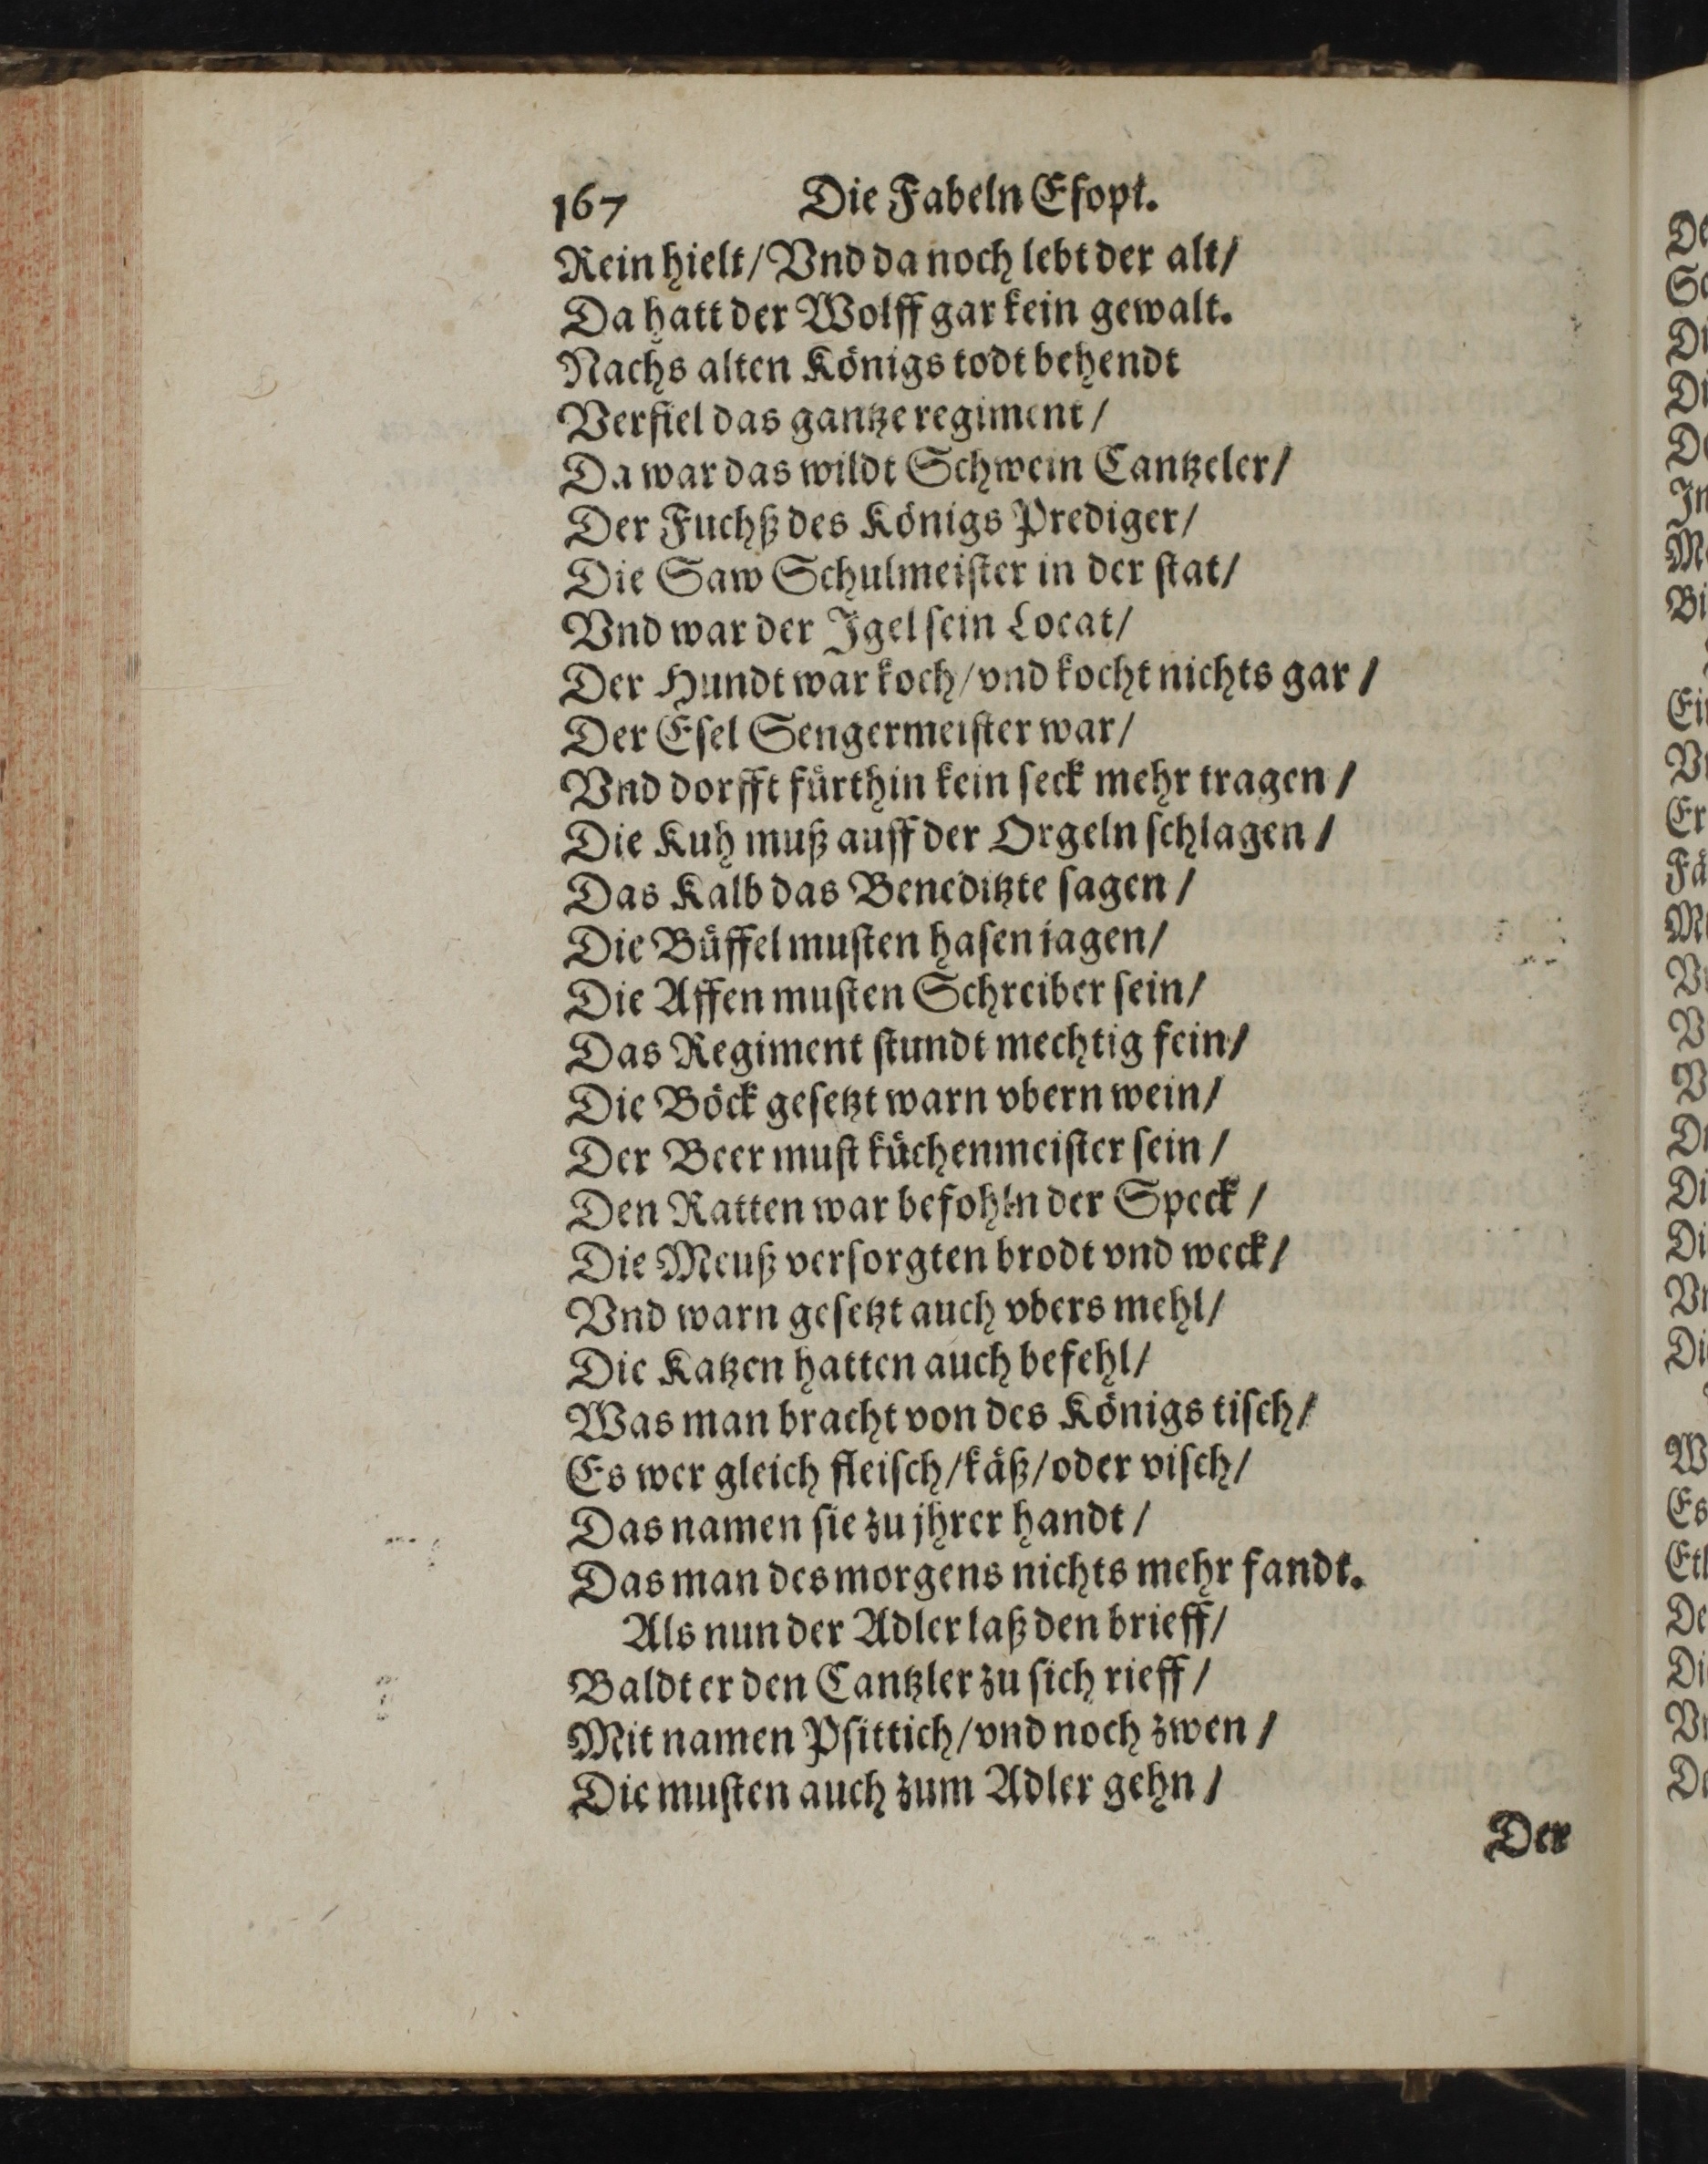 167 Die Fabeln Eſopi.
Rein hielt/ Vnd da noch lebt der alt/
Da hatt der Wolff gar kein gewalt.
Nachs alten Königs todt behendt
Verfiel das gantze regiment/
Da war das wildt Schwein Cantzeler/
Der Fuchß des Königs Prediger/
Die Saw Schulmeiſter in der ſtat/
Vnd war der Igel ſein Locat/
Der Hundt war koch/ vnd kocht nichts gar/
Der Eſel Sengermeiſter war/
Vnd dorfft fürthin kein ſeck mehr tragen/
Die Kuh muß auff der Orgeln ſchlagen/
Das Kalb das Beneditzte ſagen/
Die Büffel muſten haſen iagen/
Die Affen muſten Schreiber ſein/
Das Regiment ſtundt mechtig fein/
Die Böck geſetzt warn vbern wein/
Der Beer muſt küchenmeiſter ſein/
Den Ratten war befohln der Speck/
Die Meuß verſorgten brodt vnd weck/
Vnd warn geſetzt auch vbers mehl/
Die Katzen hatten auch befehl/
Was man bracht von des Königs tiſch/
Es wer gleich fleiſch/ käß/ oder viſch/
Das namen ſie zu jhrer handt/
Das man des morgens nichts mehr fandt.
Als nun der Adler laß den brieff/
Baldt er den Cantzler zu ſich rieff/
Mit namen Pſittich/ vnd noch zwen/
Die muſten auch zum Adler gehn/
Der